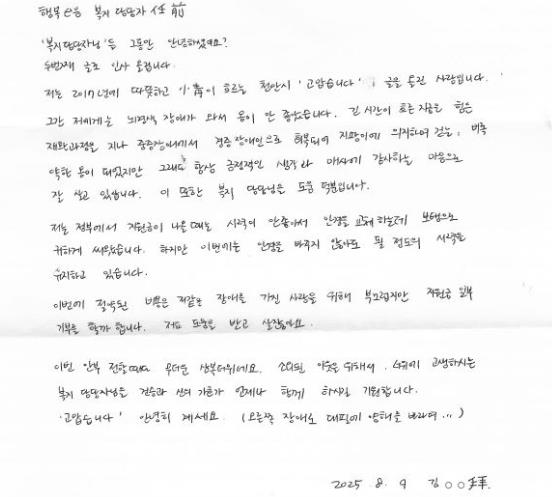 행복e음 복지 담당자 任 前
'복지담당자님'들 그동안 안녕하셨어요?
두번째 글로 인사 올립니다.
저는 2017년에 따뜻하고 小 이 흐르는 천안시 '고맙습니다' 글을 올린 사람입니다.
그간 저에게는 뇌경색 장애가 와서 몸이 안 좋았습니다. 긴 시간이 흐른 지금은 힘든
재활과정을 지나 중증장애에서 경증장애인으로 회복되어 지팡이에 의지하여 걷는, 비록
약한 몸이 되었지만 그래도 항상 긍정적인 생각과 매사에 감사하는 마음으로
잘 살고 있습니다. 이 또한 복지 담당님들 도움 덕분입니다.
저는 정부에서 지원금이 나올 때는 시력이 안좋아서 안경을 교체 하는데 보탬으로
귀하게 씌었습니다. 하지만 이번에는 안경을 바꾸지 않아도 될 정도의 시력을
유지하고 있습니다.
이번에 절약된 비용은 저같은 장애를 가진 사람을 위해 부끄럽지만 지원금 일부
기부를 할까 합니다. 저도 도움을 받고 살잖아요.
이번 안부 전할때도 무더운 삼복더위네요. 소외된 이웃을 위해서, 더위에 고생하시는
복지 담당자님들 건승과 신의 가호가 언제나 함께 하시길 기원합니다.
'고맙습니다' 안녕히 계세요. (오른쪽 장애로 대필에 양해를 바라며...)
2025. 8. 9 김○○拜.